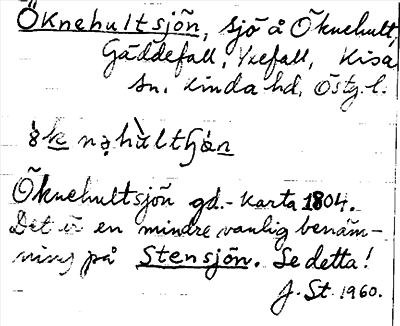 Öknehultsjön, sjö å Öknehult,
Gäddefall, Yxefall, Kisa
sn. Kinda hd, Östg. l.
Öknehultsjön gd.- karta 1804.
Det är en mindre vanlig benäm-
ning på Stensjön. Se detta!
J. St. 1960.